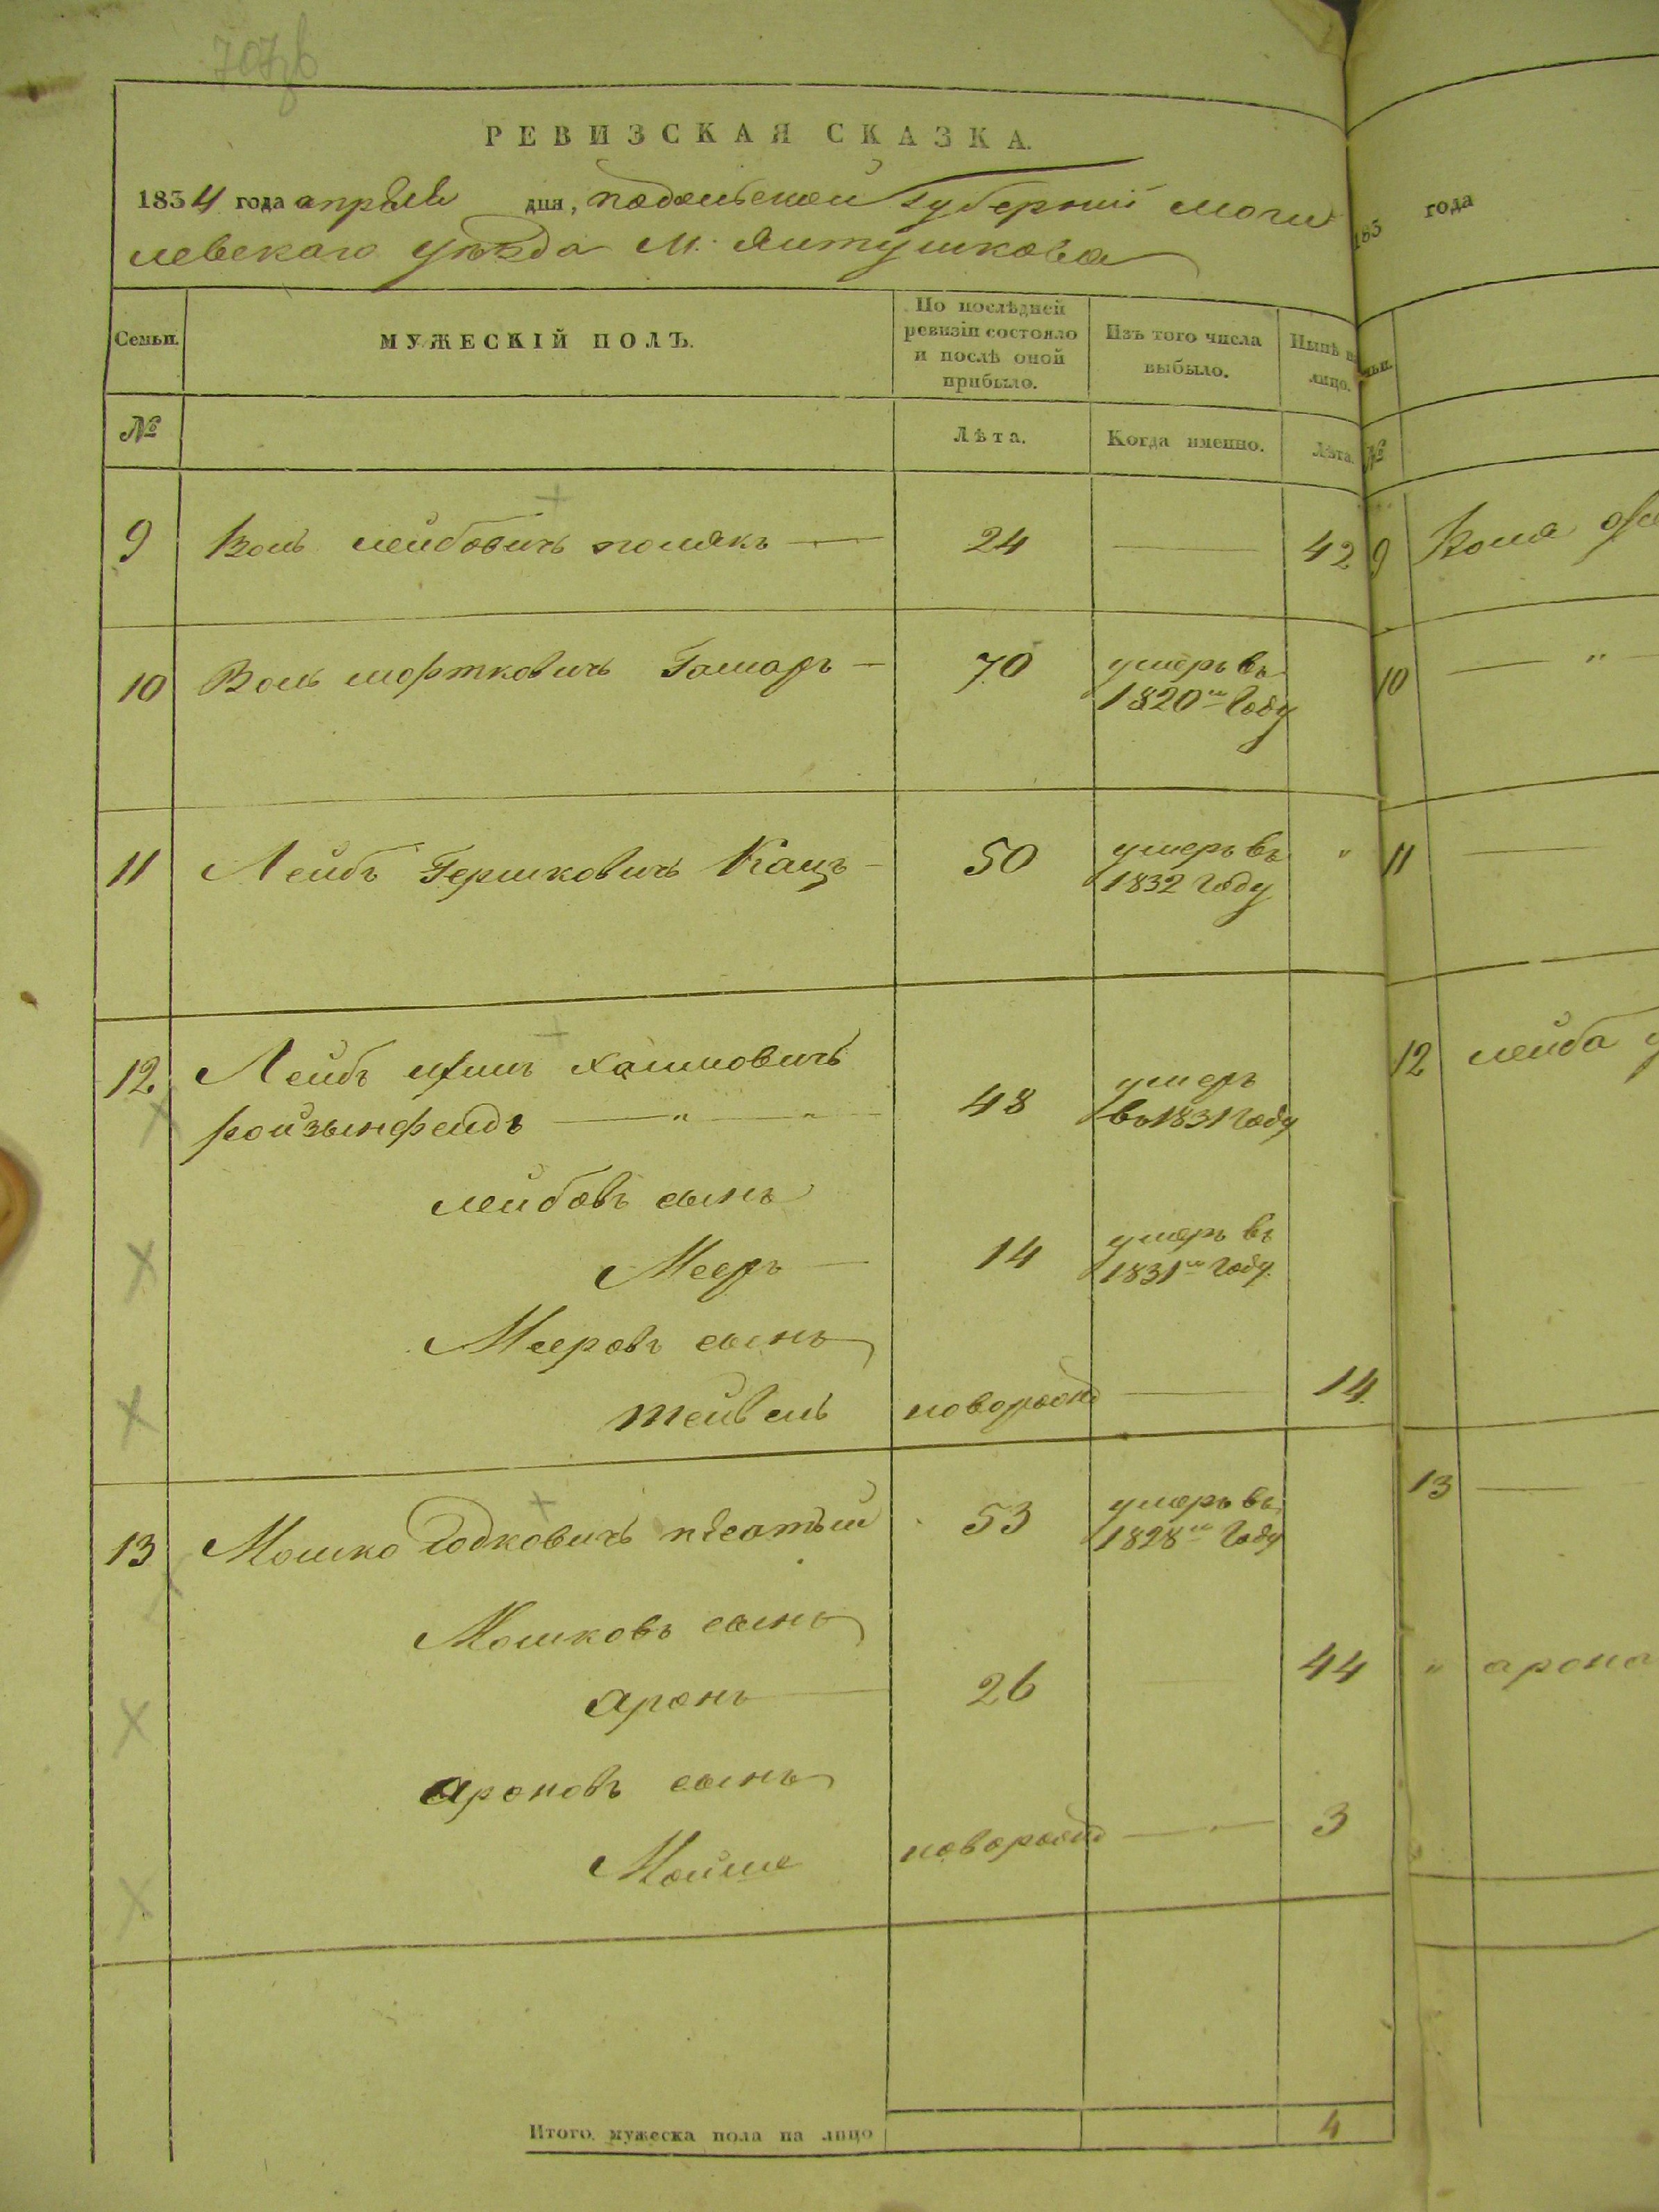 РЕВИЗСКАЯ СКАЗКА.
1834 года апреля дня, подольской губернии моги
левскаго уѣзда м. Ялтушкова
Семьи.
МУЖЕСКІЙ ПОЛЪ.
По послѣдней ревизіи состояло и послѣ оной прибыло.
Изъ того числа выбыло.
Нынѣ на лицо.
№
Лѣта.
Когда именно.
Лѣта.
9 Воль лейбовичъ полякъ 24 42
10 Воль мортковичъ Гамаръ 70 умеръ въ
1820м году
11 Лейбъ Гершковичъ Кацъ 50 умеръ въ "
1832 году
12 Лейбъ хаимовичъ
ройзынфелдъ 48 умеръ
въ 1831 году
лейбовъ сынъ
Мееръ 14 умеръ въ
1831м году
Мееровъ сынъ
тейвель новорожд 14
13 Мошко 53 умеръ въ
1828м году
Мошковъ сынъ
аронъ 26 44
ароновъ сынъ
Мойше новорожд 3
Итого мужеска пола на лицо 4
183 года
№
9 Воля
10 "
11
12 лейба
13
" арона